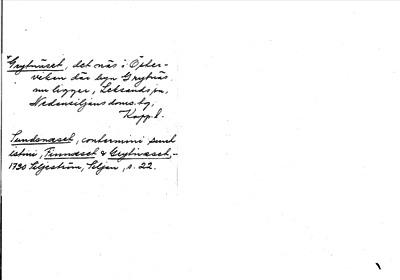 Grytnäset, det näs i Öster-
viken där byn Grytnäs
nu ligger, Leksands sn,
Nedansiljans doms.ag,
Kopp. l.
Sundsnæset, contermini sunt
istini, Finnæset & Grytnæset,-
1730 Siljeström, Siljan, s. 22.